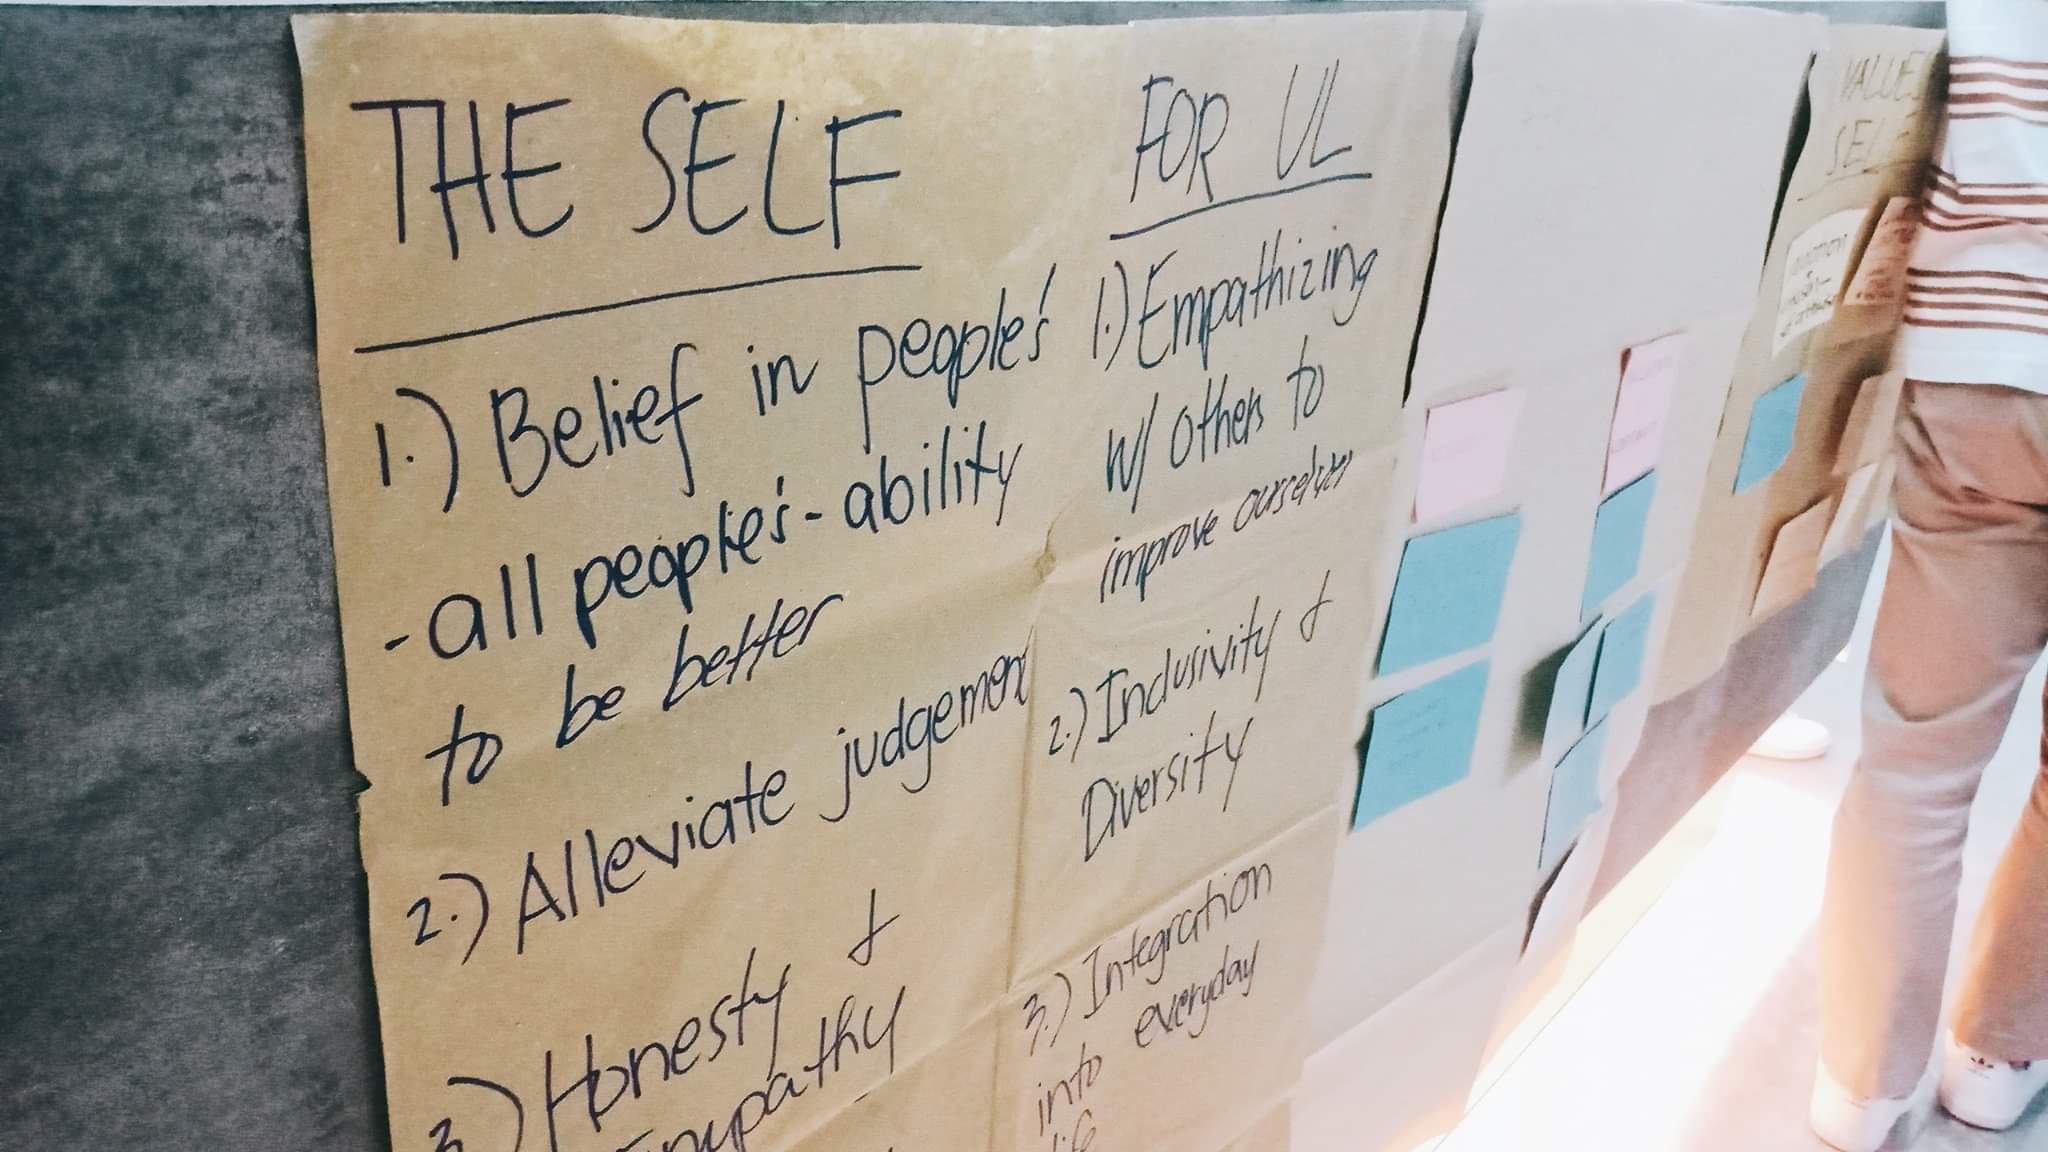 THE SELF
1.) Belief in people's
-all people's-ability
to be better
2.) Alleviate judgement
3.) Honesty &
Empathy
FOR UL
1.) Empathizing
w/ others to
improve ourselves
2.) Inclusivity &
Diversity
3.) Integration
into everyday
life
VALUES
SELF